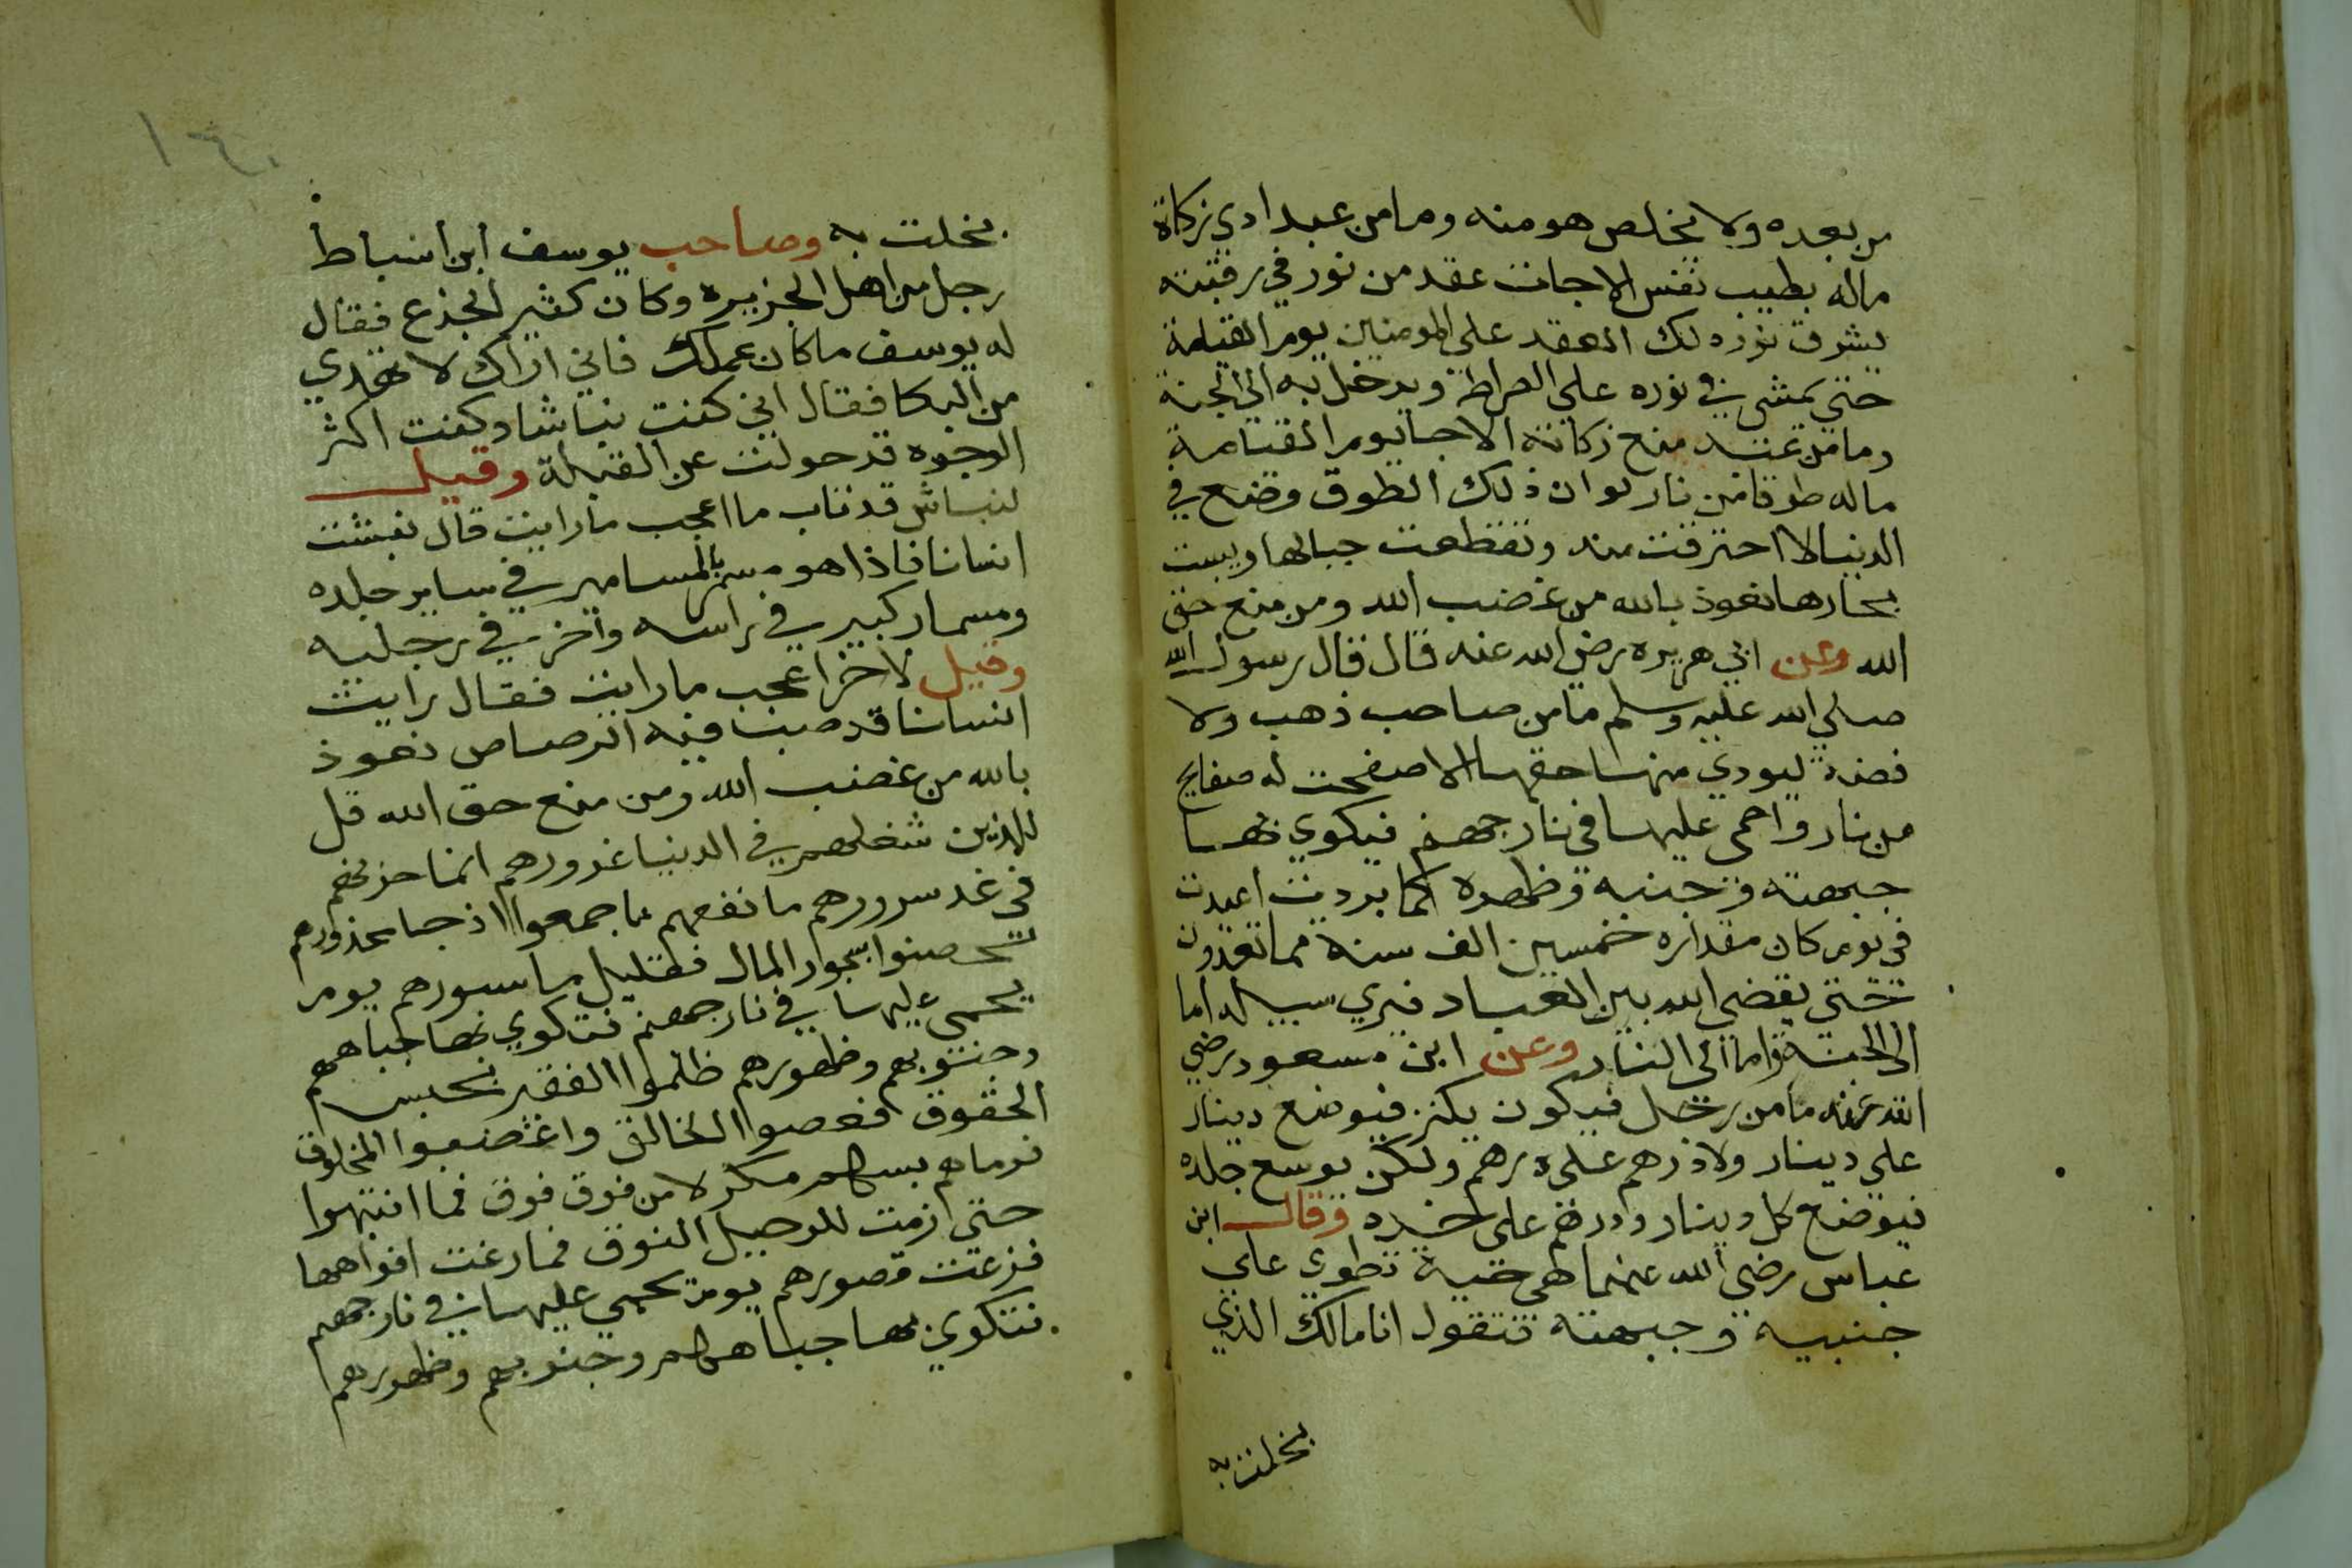 من بعده ولا يخلص هو منه وما من عبد ادي زكاة
ماله بطيب نفس الا جات عقد من نور في رقبته
يشرق نور ذلك العقد على المومنين يوم القيامة
حتى يمشي في نوره على الصراط ويدخل به الى الجنة
وما من عبد منع زكاته الا جا يوم القيامة
ماله طوقا من نار لو ان ذلك الطوق وضع في
الدنيا لا احترقت منه وتقطعت جبالها ويبست
بحارها نعوذ بالله من غضب الله ومن منع حق
الله وعن ابي هريره رضي الله عنه قال قال رسول الله
صلي الله عليه وسلم ما من صاحب ذهب ولا
فضة ليودي منها حقها الا صفحت له صفايح
من نار واحمى عليها في نار جهنم فيكوي بها
جبهته وجنبه وظهره كلما بردت اعيدت
في يوم كان مقداره خمسين الف سنة مما تعدون
حتى يقضي الله بين العباد فيري سبيله اما
الى الجنة واما الى النار وعن ابن مسعود رضي
الله عنه ما من رجل فيكون يكنز فيوضع دينار
على دينار ولا درهم على درهم ولكن يوسع جلده
فيوضع كل دينار ودرهم على حده وقال ابن
عباس رضي الله عنهما هى حية تطوي على
جنبيه وجبهته فتقول انا مالك الذي
بخلت به
١٤٠
بخلت به وصاحب يوسف ابن اسباط
رجل من اهل الجزيره وكان كثير الجذع فقال
له يوسف ما كان عملك فاني اراك لا تهدي
من البكا فقال اني كنت نباشا وكنت اكثر
الوجوه قد حولت عن القبلة وقيل
لنباش قد تاب ما اعجب ما رايت قال نبشت
انسانا فاذا هو مسمر بالمسامير في ساير جلده
ومسمار كبير في راسه واخر في رجليه
وقيل لاخر اعجب ما رايت فقال رايت
انسانا قد صب فيه الرصاص نعوذ
بالله من غضب الله ومن منع حق الله قل
للذين شغلهم في الدنيا غرورهم انما حزنهم
في غد سرورهم ما نفعهم ما جمعوا اذ جا محذورهم
تحصنوا بجوار المال فقليل ما سورهم يوم
يحمى عليها في نار جهنم فتكوي بها جباههم
وجنوبهم وظهورهم ظلموا الفقير بحبس
الحقوق فعصوا الخالق واغضبوا المخلوق
فرماهم بسهم مكر لا من فوق فوق فما انتبهوا
حتى ازمت للرحيل النوق فما رغت افواهها
فزعت قصورهم يوم يحمى عليها في نار جهنم
فتكوي بها جباههم وجنوبهم وظهورهم